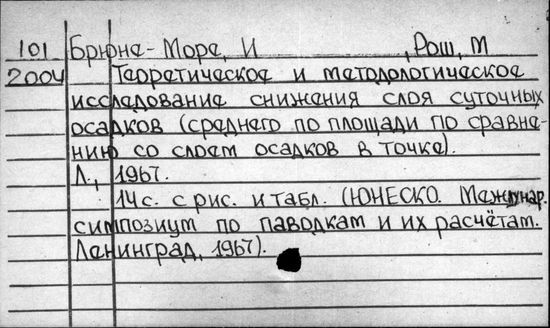 101 Брюне-Море, И ,Рош, М
2004 Теоретическое и методологическое
исследование снижения слоя суточных
осадков (среднего по площади по сравне-
нию со слоем осадков в точке).
Л., 1967.
14 с. с рис. и табл. (ЮНЕСКО. Междунар.
симпозиум по паводкам и их расчётам.
Ленинград, 1967).